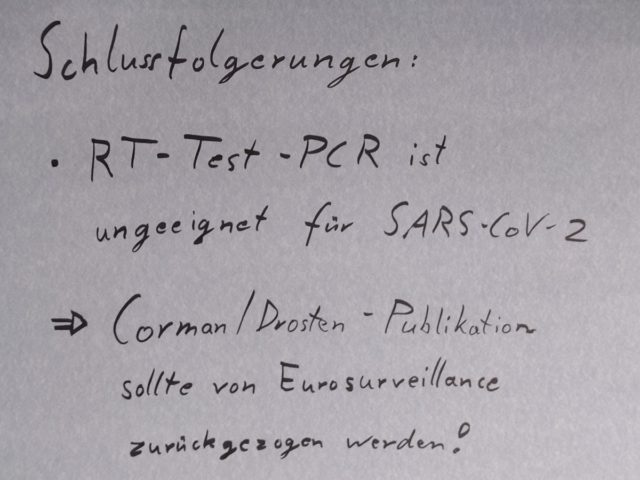 Schlussfolgerungen:
• RT-Test-PCR ist
ungeeignet für SARS-CoV-2
⇒ Corman/Drosten-Publikation
sollte von Eurosurveillance
zurückgezogen werden!